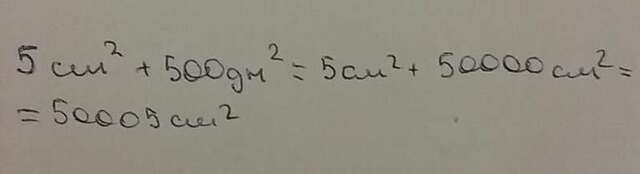 5 см² + 500 дм² = 5 см² + 50000 см² =
= 50005 см²